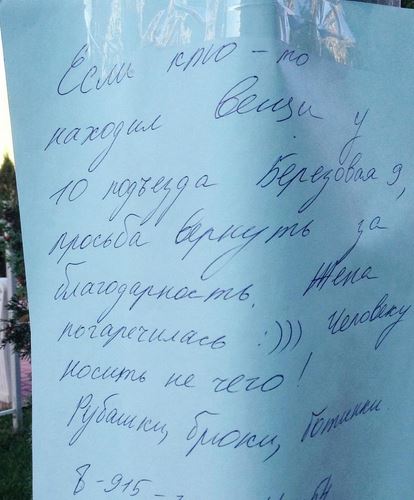 Если кто-то
находил вещи у
10 подъезда Березовая 9,
просьба вернуть за
благодарность. Жена
погаречилась :))) Человеку
носить не чего!
Рубашки, брюки, ботинки
8-915-